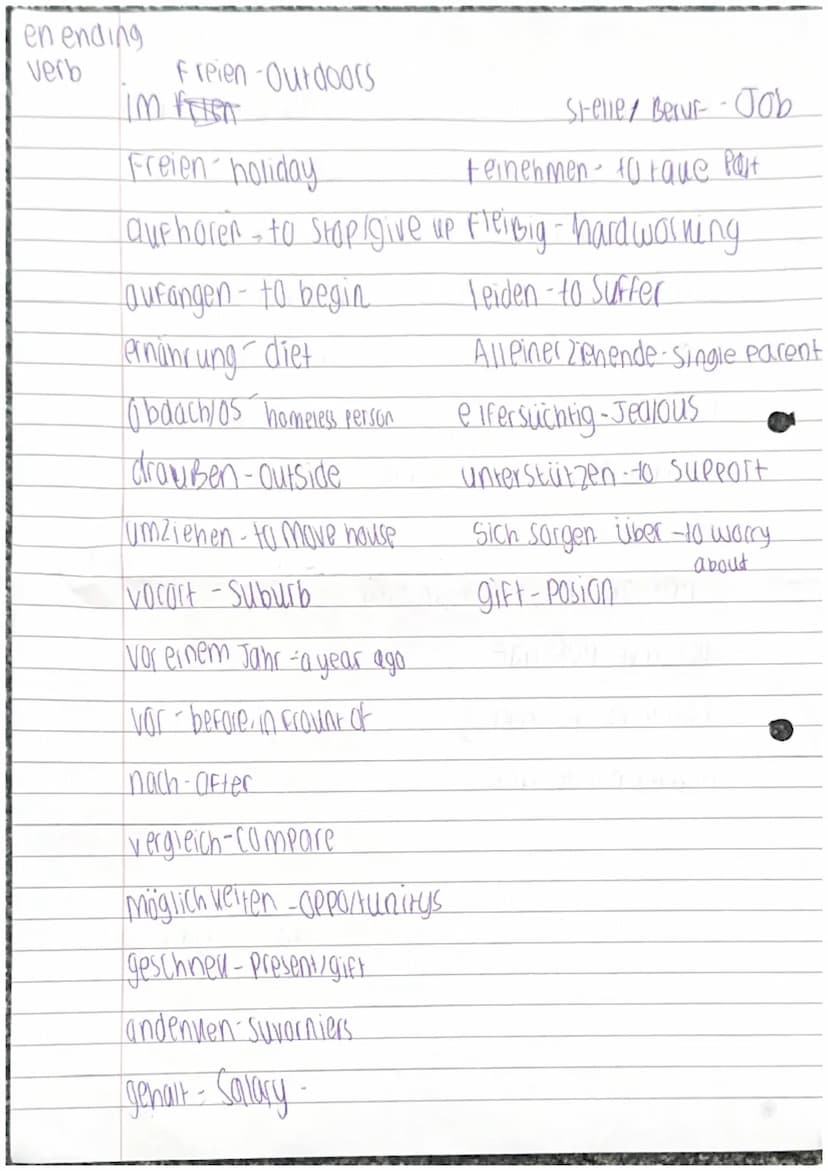 en ending
verb
Freien - Outdoors
im
Stelle / Beruf - Job
Freien - holiday
teinehmen - to take Part
aufhoren - to stop/give up
fleißig - hardworking
aufangen - to begin
leiden - to suffer
ernährung - diet
Alleinerziehende - single parent
Obdachlos - homeless person
eifersüchtig - Jealous
draußen - outside
unterstützen - to support
umziehen - to move house
Sich sorgen über - to worry
about
vocort - suburb
gift - posion
vor einem Jahr - a year ago
vor - before, in frount of
nach - after
vergleich - compare
möglichkeiten - opportunitys
geschnek - present/gift
andenken - suvorniers
gehalt = Salary -